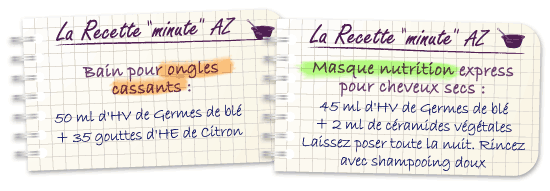 La Recette "minute" AZ
Bain pour ongles
cassants :
50 ml d'HV de Germes de blé
+ 35 gouttes d'HE de Citron
La Recette "minute" AZ
Masque nutrition express
pour cheveux secs :
45 ml d'HV de Germes de blé
+ 2 ml de céramides végétales
Laissez poser toute la nuit. Rincez
avec shampooing doux